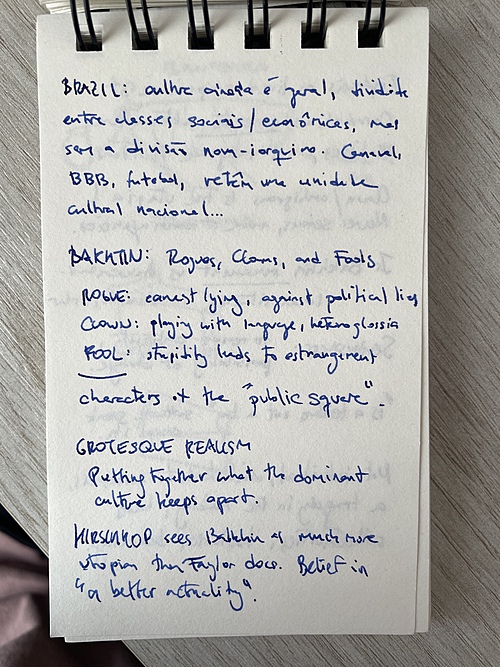 BRAZIL: cultura ainda é geral, dividida
entre classes sociais/econômicas, mas
sem a divisão nova-iorquina. Carnaval,
BBB, futebol, retêm uma unidade
cultural nacional...
BAKHTIN: Rogues, Clowns, and Fools
ROGUE: earnest lying, against political lies
CLOWN: playing with language, heteroglossia
FOOL: stupidity leads to estrangement
characters of the "public square".
GROTESQUE REALISM
Putting together what the dominant
culture keeps apart.
HIRSCHKOP sees Bakhtin as much more
utopian than Taylor does. Belief in
"a better actuality".